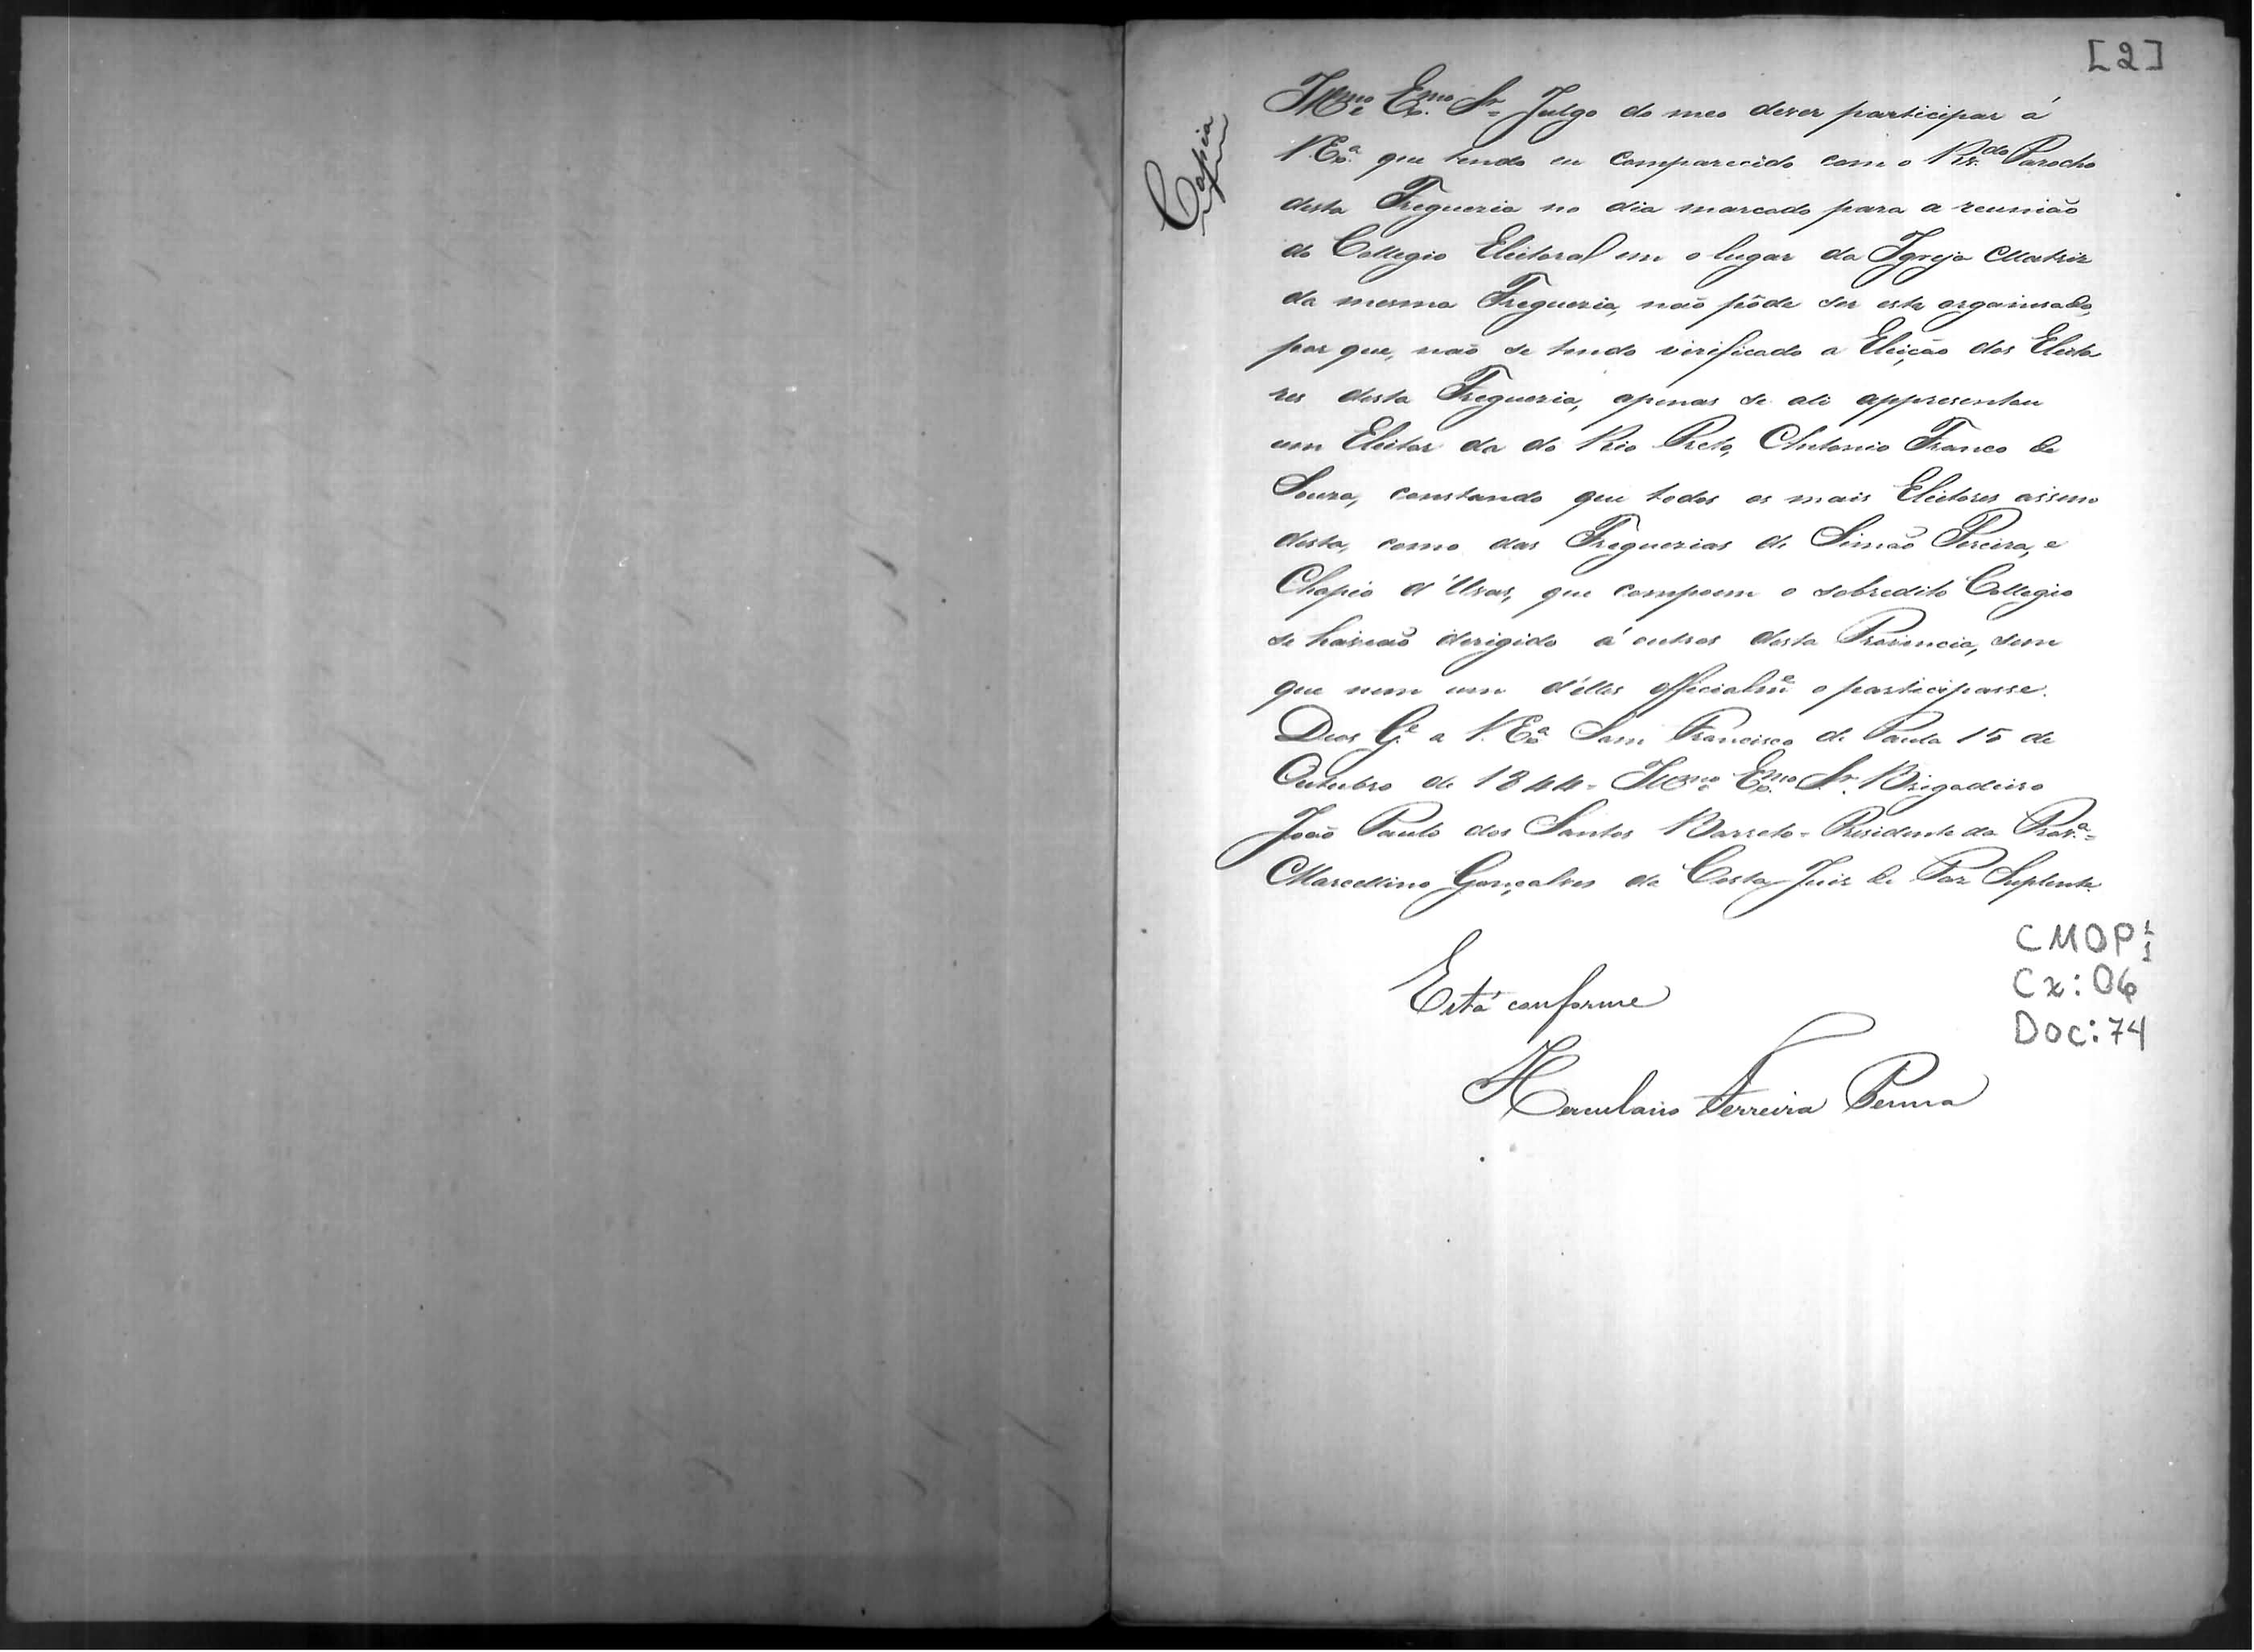 [2]
Copia
Illmo. e Exmo. Sr. = Julgo do meo dever participar á
V. Exa. que tendo eu comparecido com o Rvdo. Parocho
desta Freguezia no dia marcado para a reunião
do Collegio Eleitoral em o lugar da Igreja Matriz
da mesma Freguezia, não pôde ser este organisado,
por que, não se tendo virificado a Eleição dos Eleito
res desta Freguezia, apenas se ali appresentou
um Eleitor da do Rio Preto, Antonio Franco de
Souza, constando que todos os mais Eleitores assim
desta, como das Freguezias de Simão Pereira, e
Chapéo d'Uvas, que compoem o sobredito Collegio
se havião derigido á outros desta Provincia, sem
que nem um d'elles officialme. o participasse.
Deos Ge. a V. Exa. Sam Francisco de Paula 15 de
Outubro de 1844 = Illmo. e Exmo. Sr. Brigadeiro
João Paulo dos Santos Barreto = Presidente da Prova. =
Marcellino Gonçalves da Costa, Juiz de Paz Suplente.
Está conforme
Herculano Ferreira Penna
CMOP
Cx: 06
Doc: 74